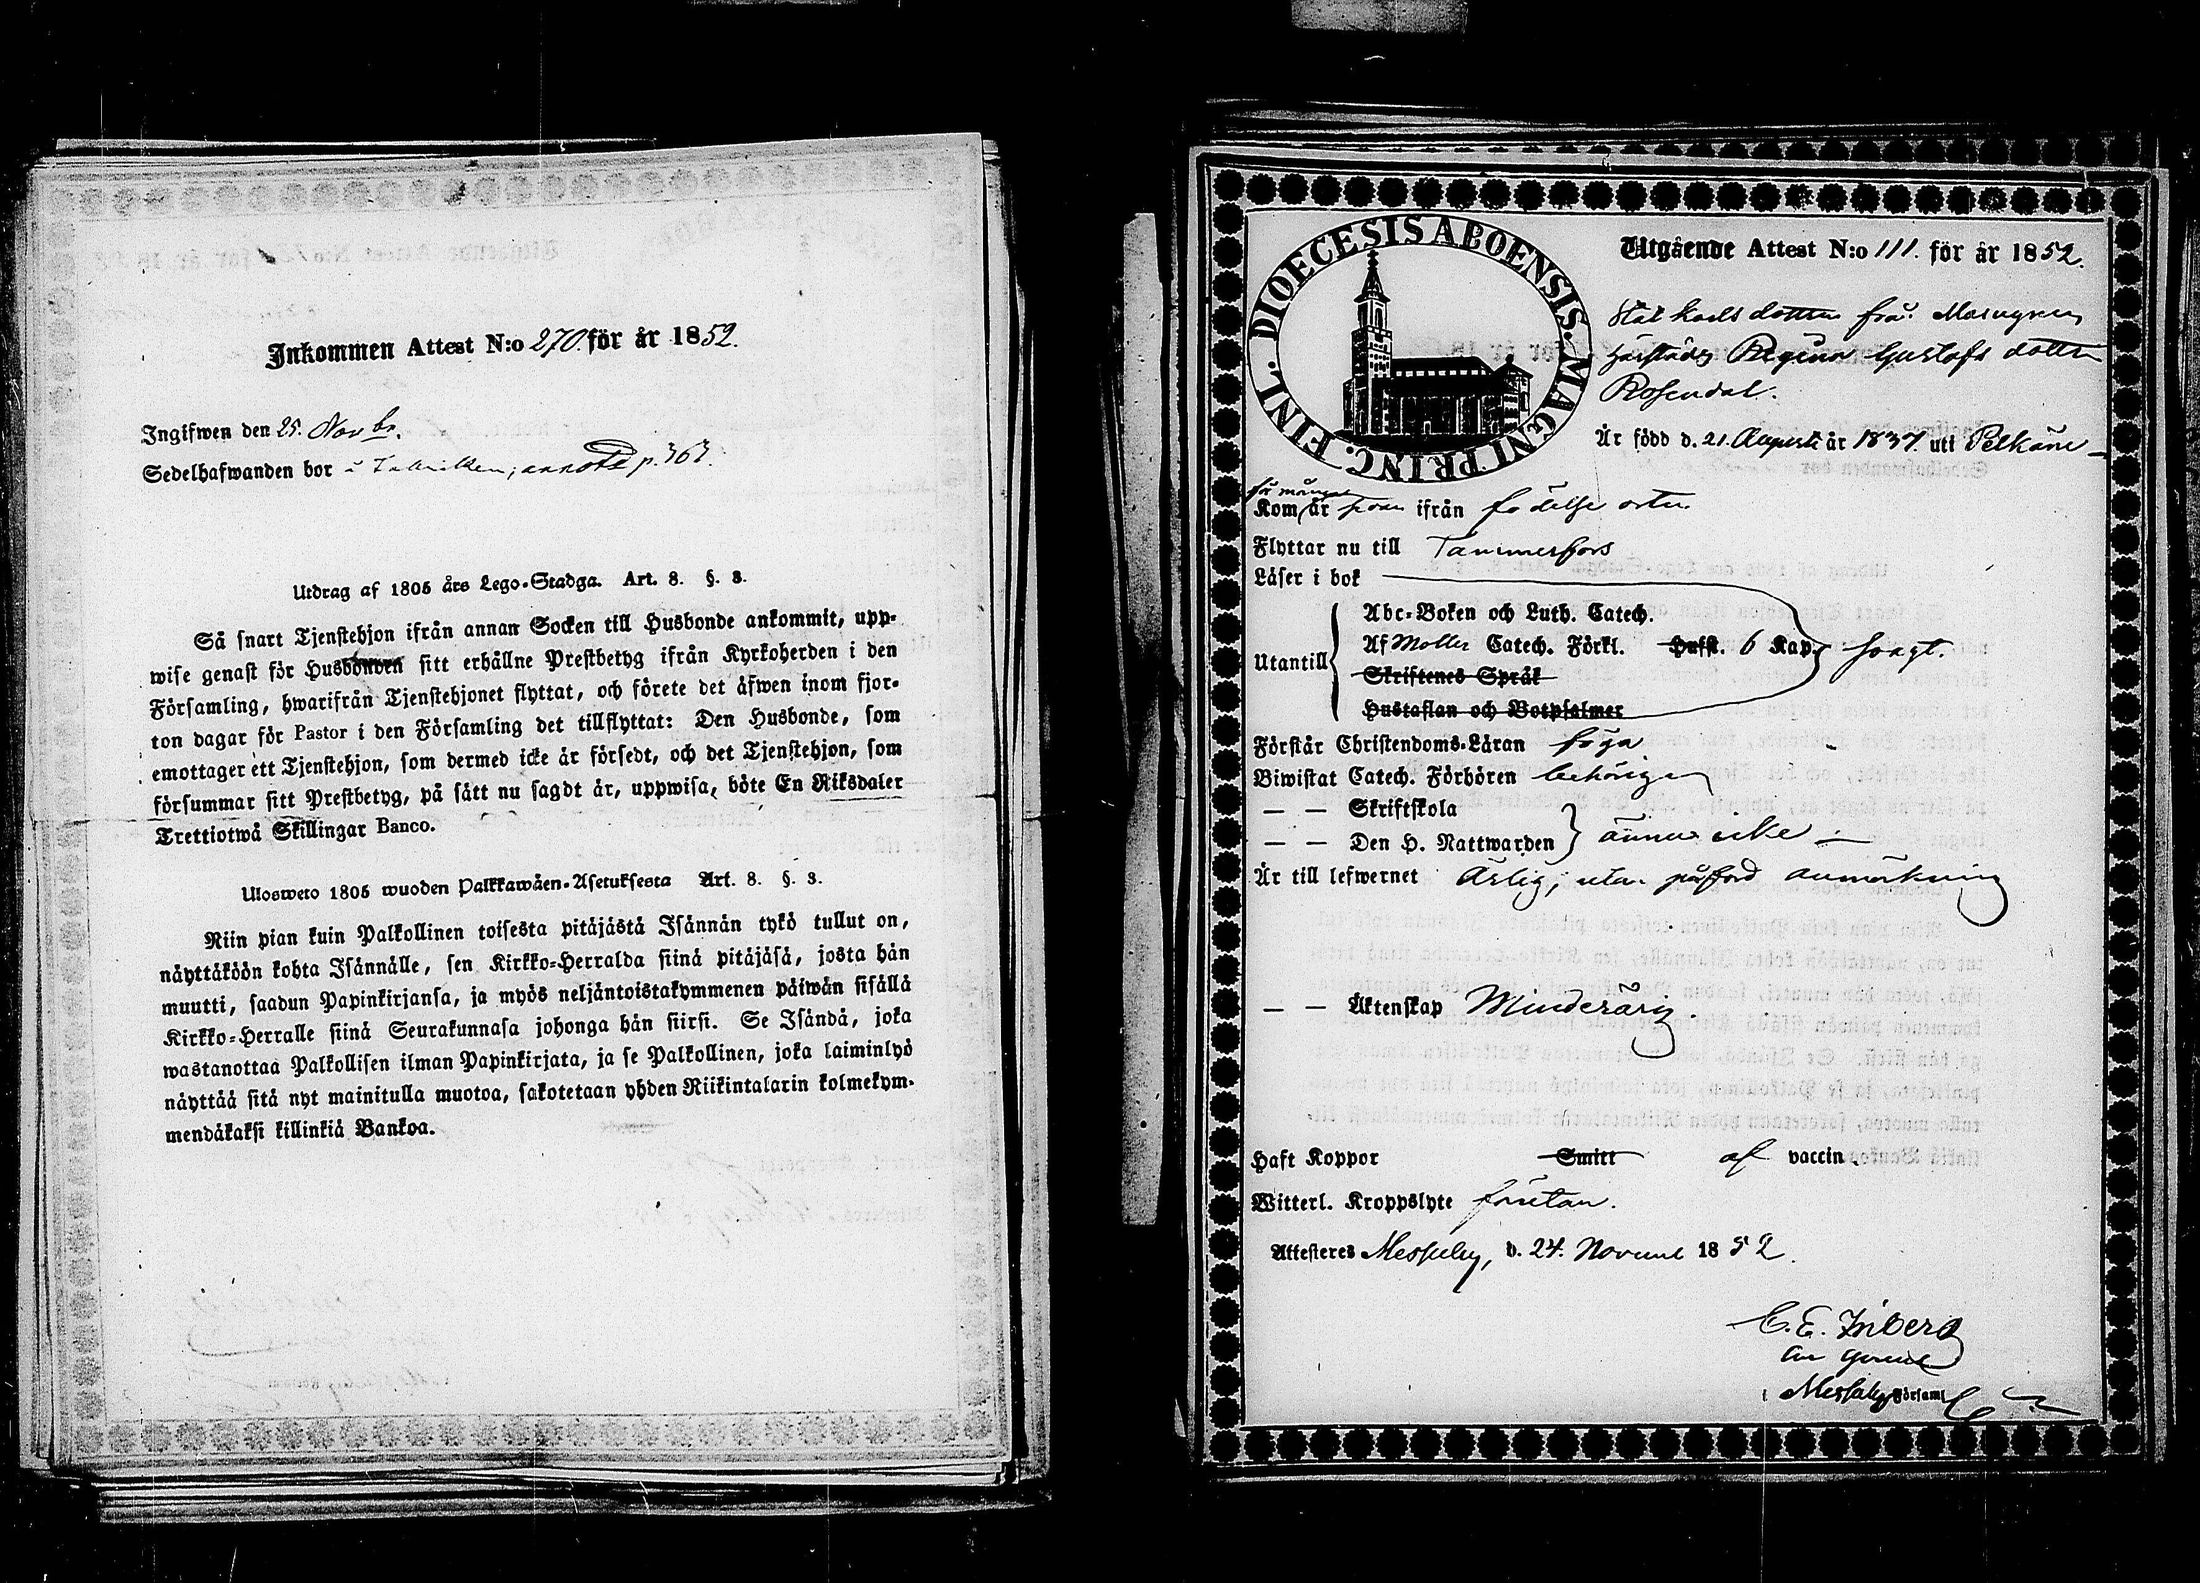 Inkommen Attest N:o 270 för år 1852.
Ingifwen den 25. Novbr.
Sedelhafwanden bor i Fabriken, annot. p. 363.
Utdrag af 1805 års Lego-Stadga. Art. 8. §. 3.
Så snart Tjenstehjon ifrån annan Socken till Husbonde ankommit, upp-
wise genast för Husbonden sitt erhållne Prestbetyg ifrån Kyrkoherden i den
Församling, hwarifrån Tjenstehjonet flyttat, och förete det äfwen inom fjor-
ton dagar för Pastor i den Församling det tillflyttat: Den Husbonde, som
emottager ett Tjenstehjon, som dermed icke är försedt, och det Tjenstehjon, som
försummar sitt Prestbetyg, på sätt nu sagdt är, uppwisa, böte En Riksdaler
Trettiotwå Skillingar Banco.
Ulosweto 1805 wuoden Palkkawäen-Asetuksesta Art. 8. §. 3.
Niin pian kuin Palkollinen toisesta pitäjästä Isännän tykö tullut on,
näyttäköön kohta Isännälle, sen Kirkko-Herralda siinä pitäjäsä, josta hän
muutti, saadun Papinkirjansa, ja myös neljäntoistakymmenen päiwän sisällä
Kirkko-Herralle siinä Seurakunnasa johonga hän siirsi. Se Isändä, joka
wastanottaa Palkollisen ilman Papinkirjata, ja se Palkollinen, joka laiminlyö
näyttää sitä nyt mainitulla muotoa, sakotetaan yhden Riikintalarin kolmekym-
mendäkaksi killinkiä Bankoa.
DIOECESIS ABOENSIS. MAGNI PRINC. FINL.
Utgående Attest N:o 111. för år 1852.
dotter från
Regina Gustafs dotter
Rosendal.
Är född d. 21 Augusti år 1837 uti Pelkäne
för många
Kom år sedan ifrån födelse orten
Flyttar nu till Tammerfors
Läser i bok
Abc-Boken och Luth. Catech.
Utantill Af Möller Catech. Förkl. Hufst. 6 Kap. svagt.
Skriftenes Språk
Hustaflan och Botpsalmer
Förstår Christendoms-Läran föga
Biwistat Catech. Förhören behörigen
— — Skriftskola
— — Den H. Nattwarden ännu icke —
Är till lefwernet Ärlig, utan påförd anmärkning
— — Äktenskap Minderårig.
Haft Koppor Smitt af vaccin.
Witterl. Kroppslyte förutan.
Attesteres Messuby, d. 24. Novemb 1852.
C. E. Inberg
i Messuby Församl